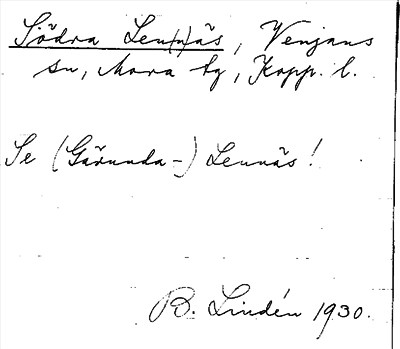 Södra Len(n)äs, Venjans
sn, Mora tg, Kopp. l.
Se (Gärunda-) Lennäs!
B. Lindén 1930.